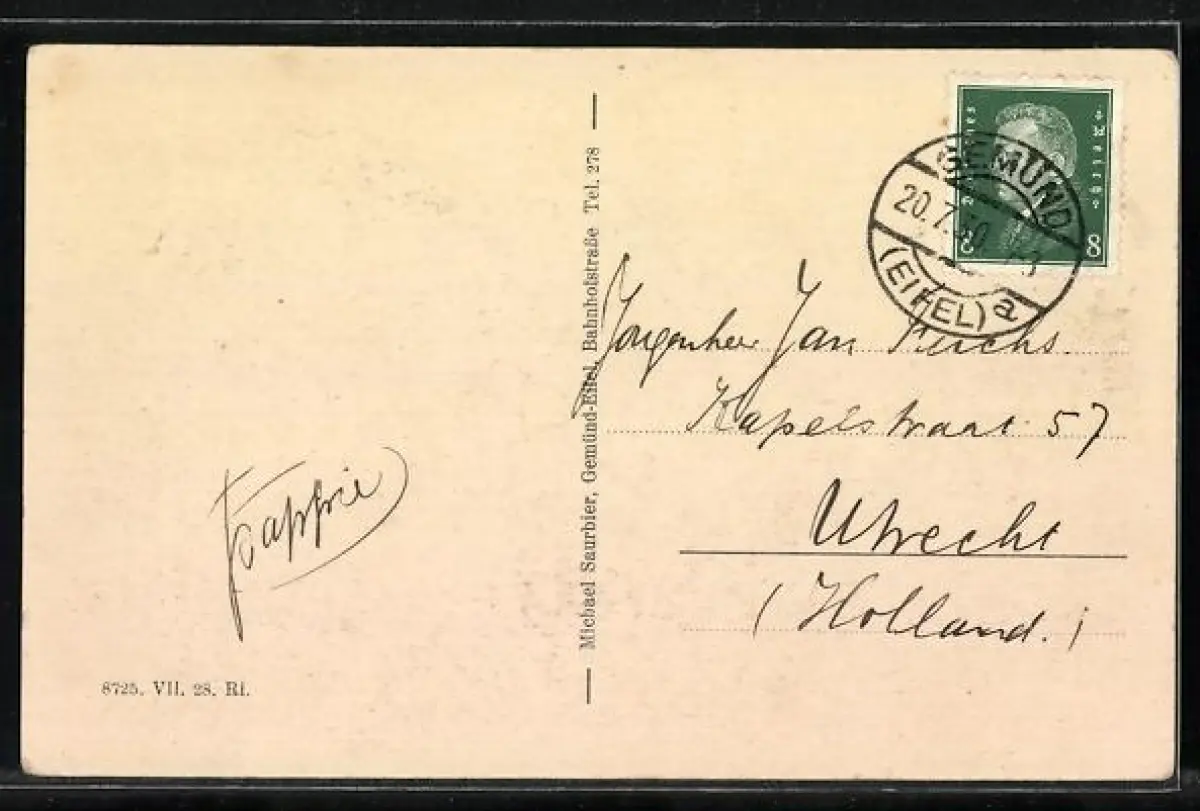 Pappie
8725. VII. 28. Ri.
Michael Saurbier, Gemünd-Eifel, Bahnhofstraße Tel. 278
Deutsches
Reich
8
8
GEMÜND
20.7.30
(EIFEL) a
Jongenheer Jan
Kapelstraat 57
Utrecht
(Holland.)